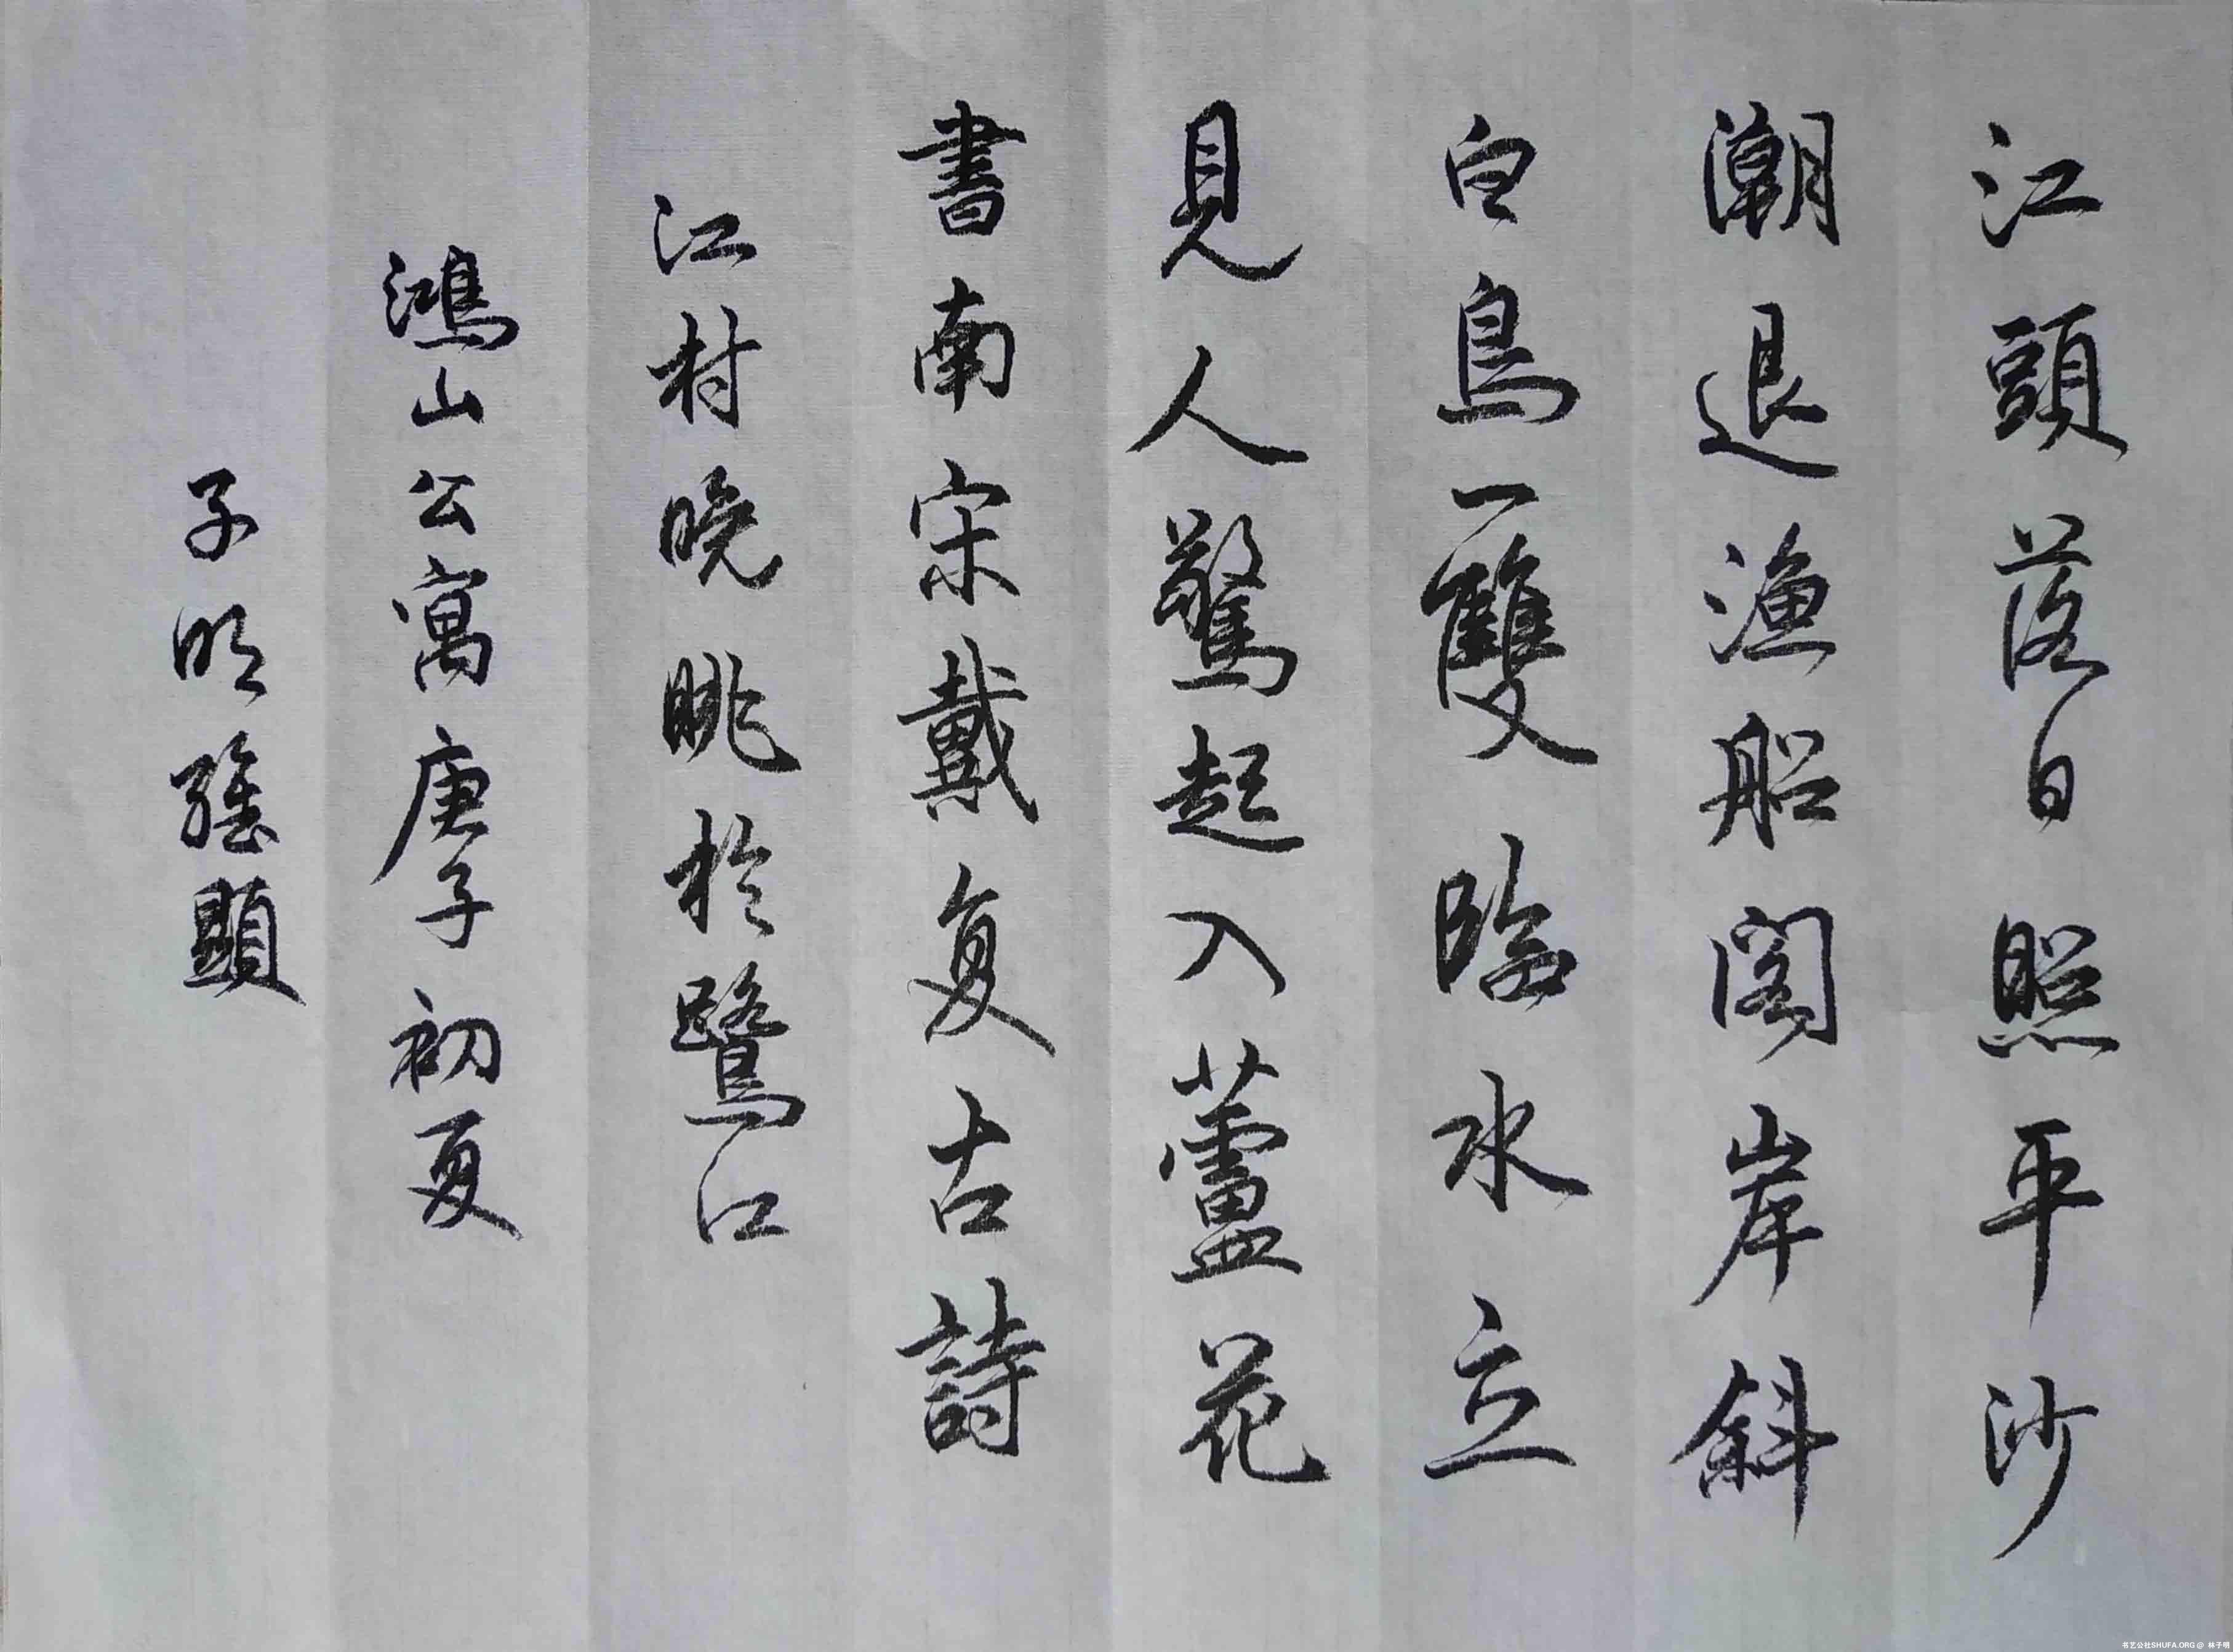 江頭落日照平沙
潮退渔船閣岸斜
白鳥一雙臨水立
見人驚起入蘆花
書南宋戴复古詩
江村晚眺於鷺江
鴻山公寓庚子初夏
子明
名艺公社SHUFA.ORG @ 林子明